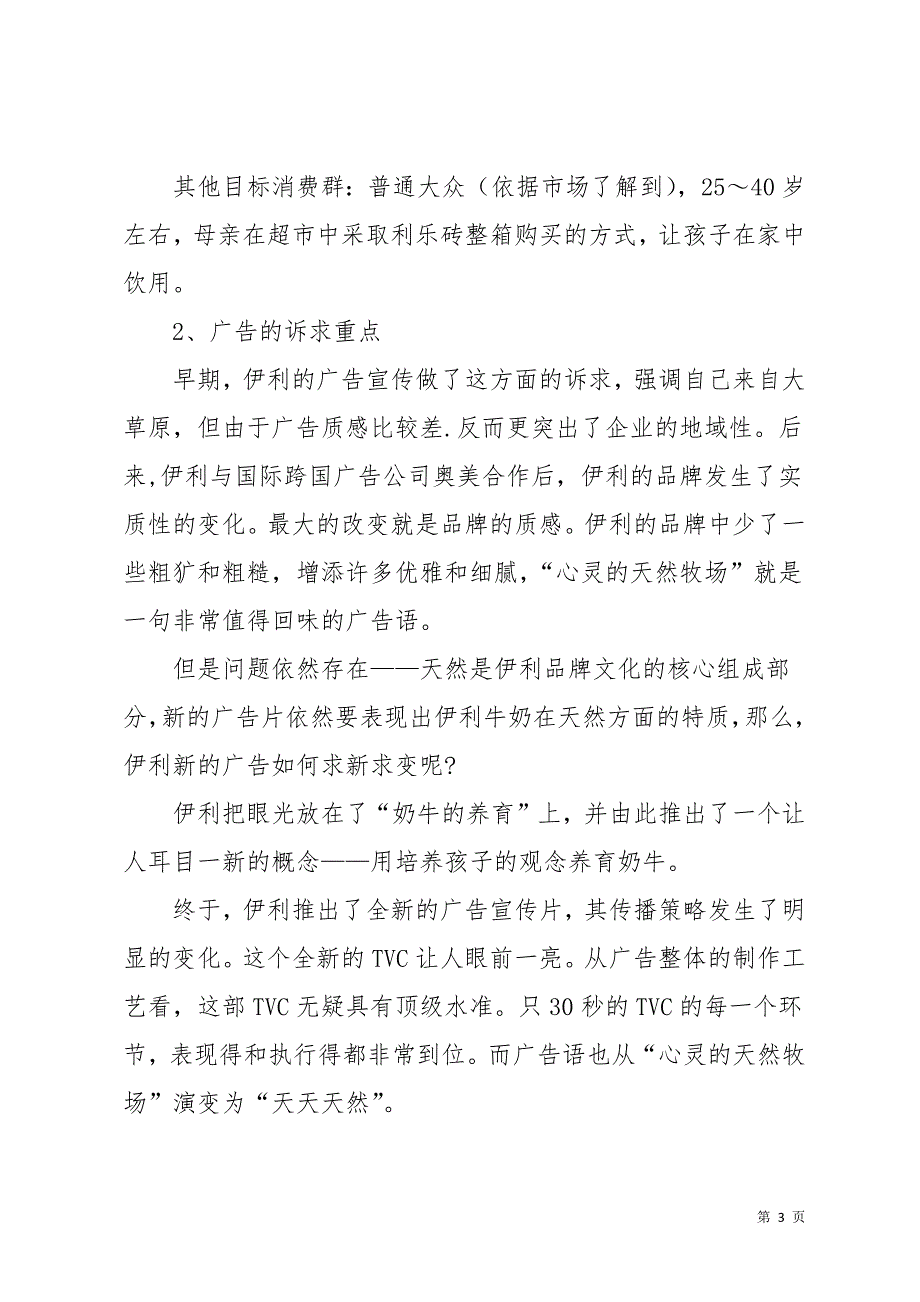 其他目标消费群：普通大众（依据市场了解到），25～40 岁
左右，母亲在超市中采取利乐砖整箱购买的方式，让孩子在家中
饮用。
2、广告的诉求重点
早期，伊利的广告宣传做了这方面的诉求，强调自己来自大
草原，但由于广告质感比较差.反而更突出了企业的地域性。后
来,伊利与国际跨国广告公司奥美合作后，伊利的品牌发生了实
质性的变化。最大的改变就是品牌的质感。伊利的品牌中少了一
些粗犷和粗糙，增添许多优雅和细腻，“心灵的天然牧场”就是
一句非常值得回味的广告语。
但是问题依然存在——天然是伊利品牌文化的核心组成部
分,新的广告片依然要表现出伊利牛奶在天然方面的特质,那么,
伊利新的广告如何求新求变呢?
伊利把眼光放在了“奶牛的养育”上，并由此推出了一个让
人耳目一新的概念——用培养孩子的观念养育奶牛。
终于，伊利推出了全新的广告宣传片，其传播策略发生了明
显的变化。这个全新的 TVC 让人眼前一亮。从广告整体的制作工
艺看，这部 TVC 无疑具有顶级水准。只 30 秒的 TVC 的每一个环
节，表现得和执行得都非常到位。而广告语也从“心灵的天然牧
场”演变为“天天天然”。
第 3 页